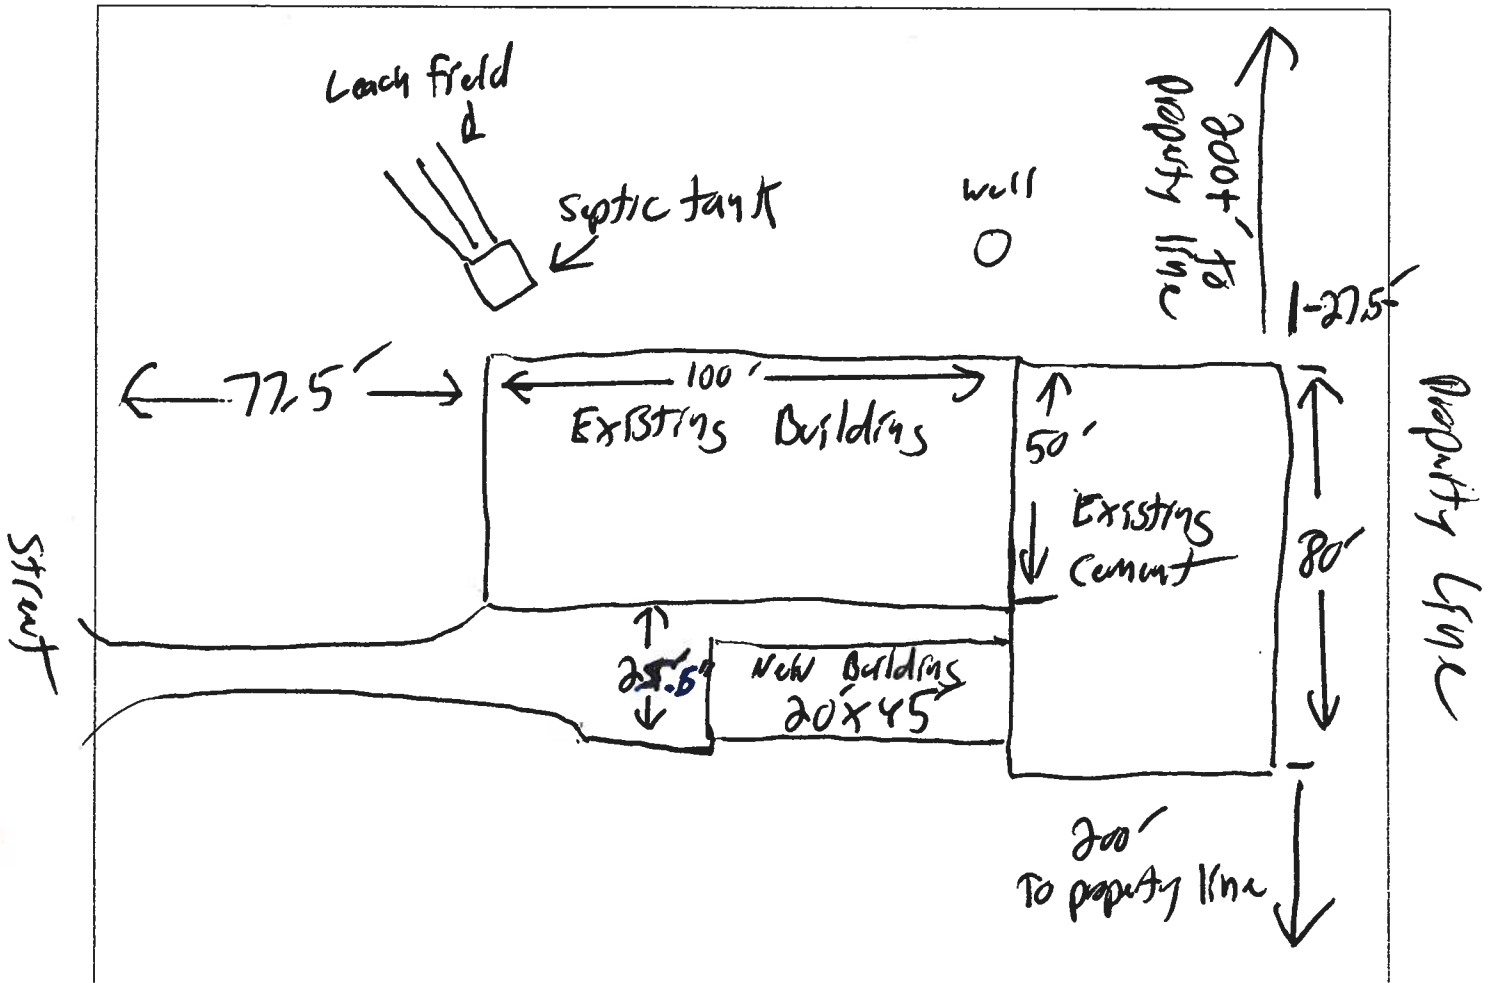 Leach field
septic tank
well
200+' to
property line
27.5'
77.5'
100'
Existing Building
50'
Existing
Cement
80'
Property Line
Street
25.5"
New Building
20'x45'
200'
To property line